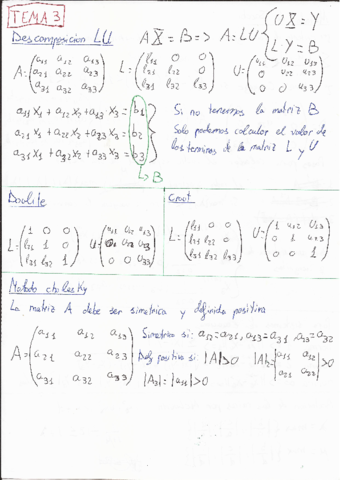 TEMA 3
Descomposicion LU
A X = B => A = LU { U X = Y
L Y = B
A = ( a11 a12 a13
a21 a22 a23
a31 a32 a33 )
L = ( l11 0 0
l21 l22 0
l31 l32 l33 )
U = ( u11 u12 u13
0 u22 u23
0 0 u33 )
a11 x1 + a12 x2 + a13 x3 = b1
a21 x1 + a22 x2 + a23 x3 = b2
a31 x1 + a32 x2 + a33 x3 = b3
B
Si no tenemos la matriz B
Solo podemos calcular el valor de
los terminos de la matriz L y U
Doolite
L = ( 1 0 0
l21 1 0
l31 l32 1 )
U = ( u11 u12 u13
0 u22 u23
0 0 u33 )
Crout
L = ( l11 0 0
l21 l22 0
l31 l32 l33 )
U = ( 1 u12 u13
0 1 u23
0 0 1 )
Metodo cholesky
La matriz A debe ser simetrica y definida positiva
A = ( a11 a12 a13
a21 a22 a23
a31 a32 a33 )
Simetrica si: a12 = a21, a13 = a31, a23 = a32
positiva si: |A| > 0 |A2| = | a11 a12
a21 a22 | > 0
|A1| = |a11| > 0